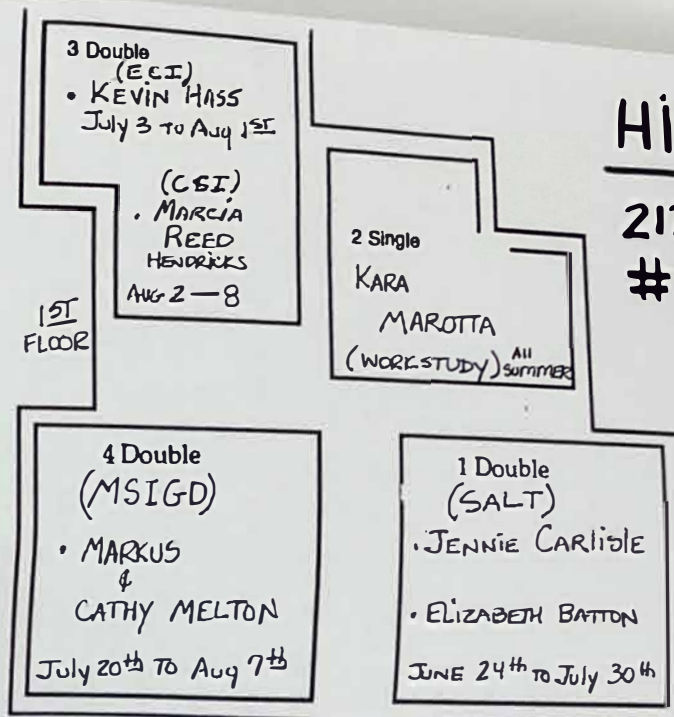 3 Double
(ECI)
• KEVIN HASS
July 3 TO Aug 1ST
(CSI)
• MARCIA
REED
HENDRICKS
AUG 2 — 8
1ST
FLOOR
2 Single
KARA
MAROTTA
(WORKSTUDY) All
SUMMER
4 Double
(MSIGD)
• MARKUS
&
CATHY MELTON
July 20th TO Aug 7th
1 Double
(SALT)
• JENNIE CARlislE
• ELIZABETH BATTON
JUNE 24th TO July 30th
#